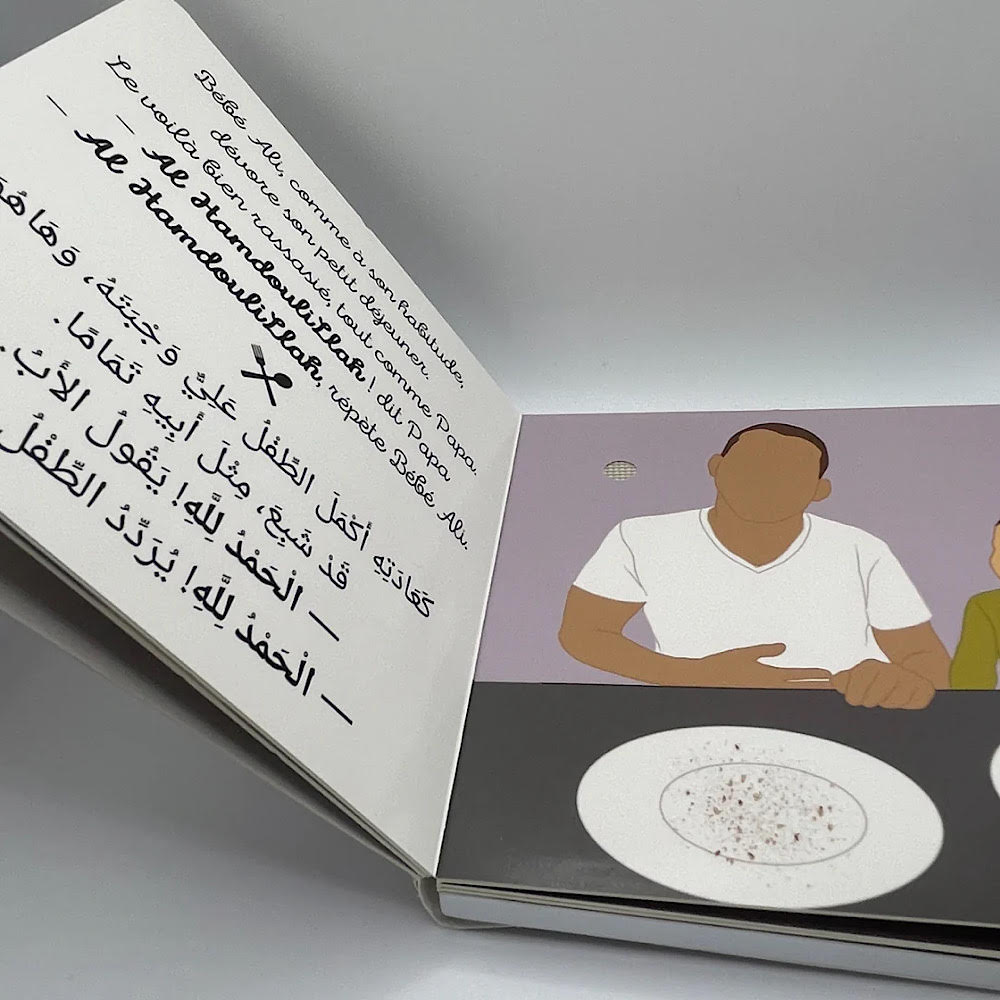 Bébé Ali, comme à son habitude,
dévore son petit déjeuner.
Le voilà bien rassasié, tout comme Papa.
— Al HamdouliLlah ! dit Papa
— Al HamdouliLlah, répète Bébé Ali.
كَعَادَتِهِ أَكْمَلَ الطِّفْلُ عَلِيَّ وَجْبَتَهُ، وَهَاهُوَ
قَدْ شَبِعَ، مِثْلَ أَبِيهِ تَمَامًا.
— الْحَمْدُ لِلَّهِ! يَقُولُ الأَبُ.
— الْحَمْدُ لِلَّهِ! يُرَدِّدُ الطِّفْلُ